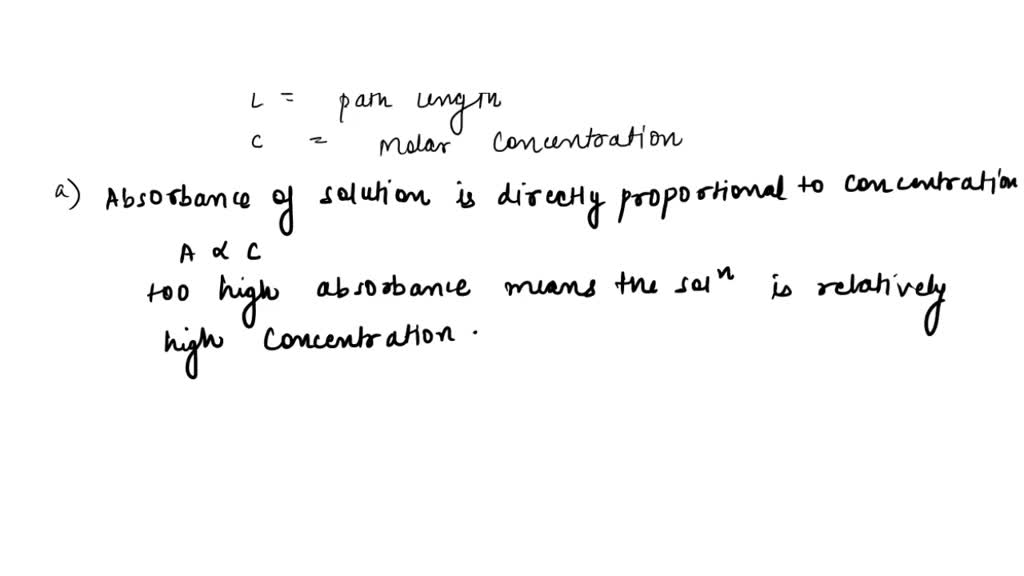 L = path length
C = Molar Concentration
a) Absorbance of solution is directly proportional to concentration
A α C
too high absorbance means the solⁿ is relatively
high concentration.